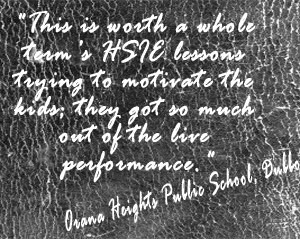 "This is worth a whole
term's HSIE lessons
trying to motivate the
kids; they got so much
out of the live
performance."
Orana Heights Public School, Dubbo